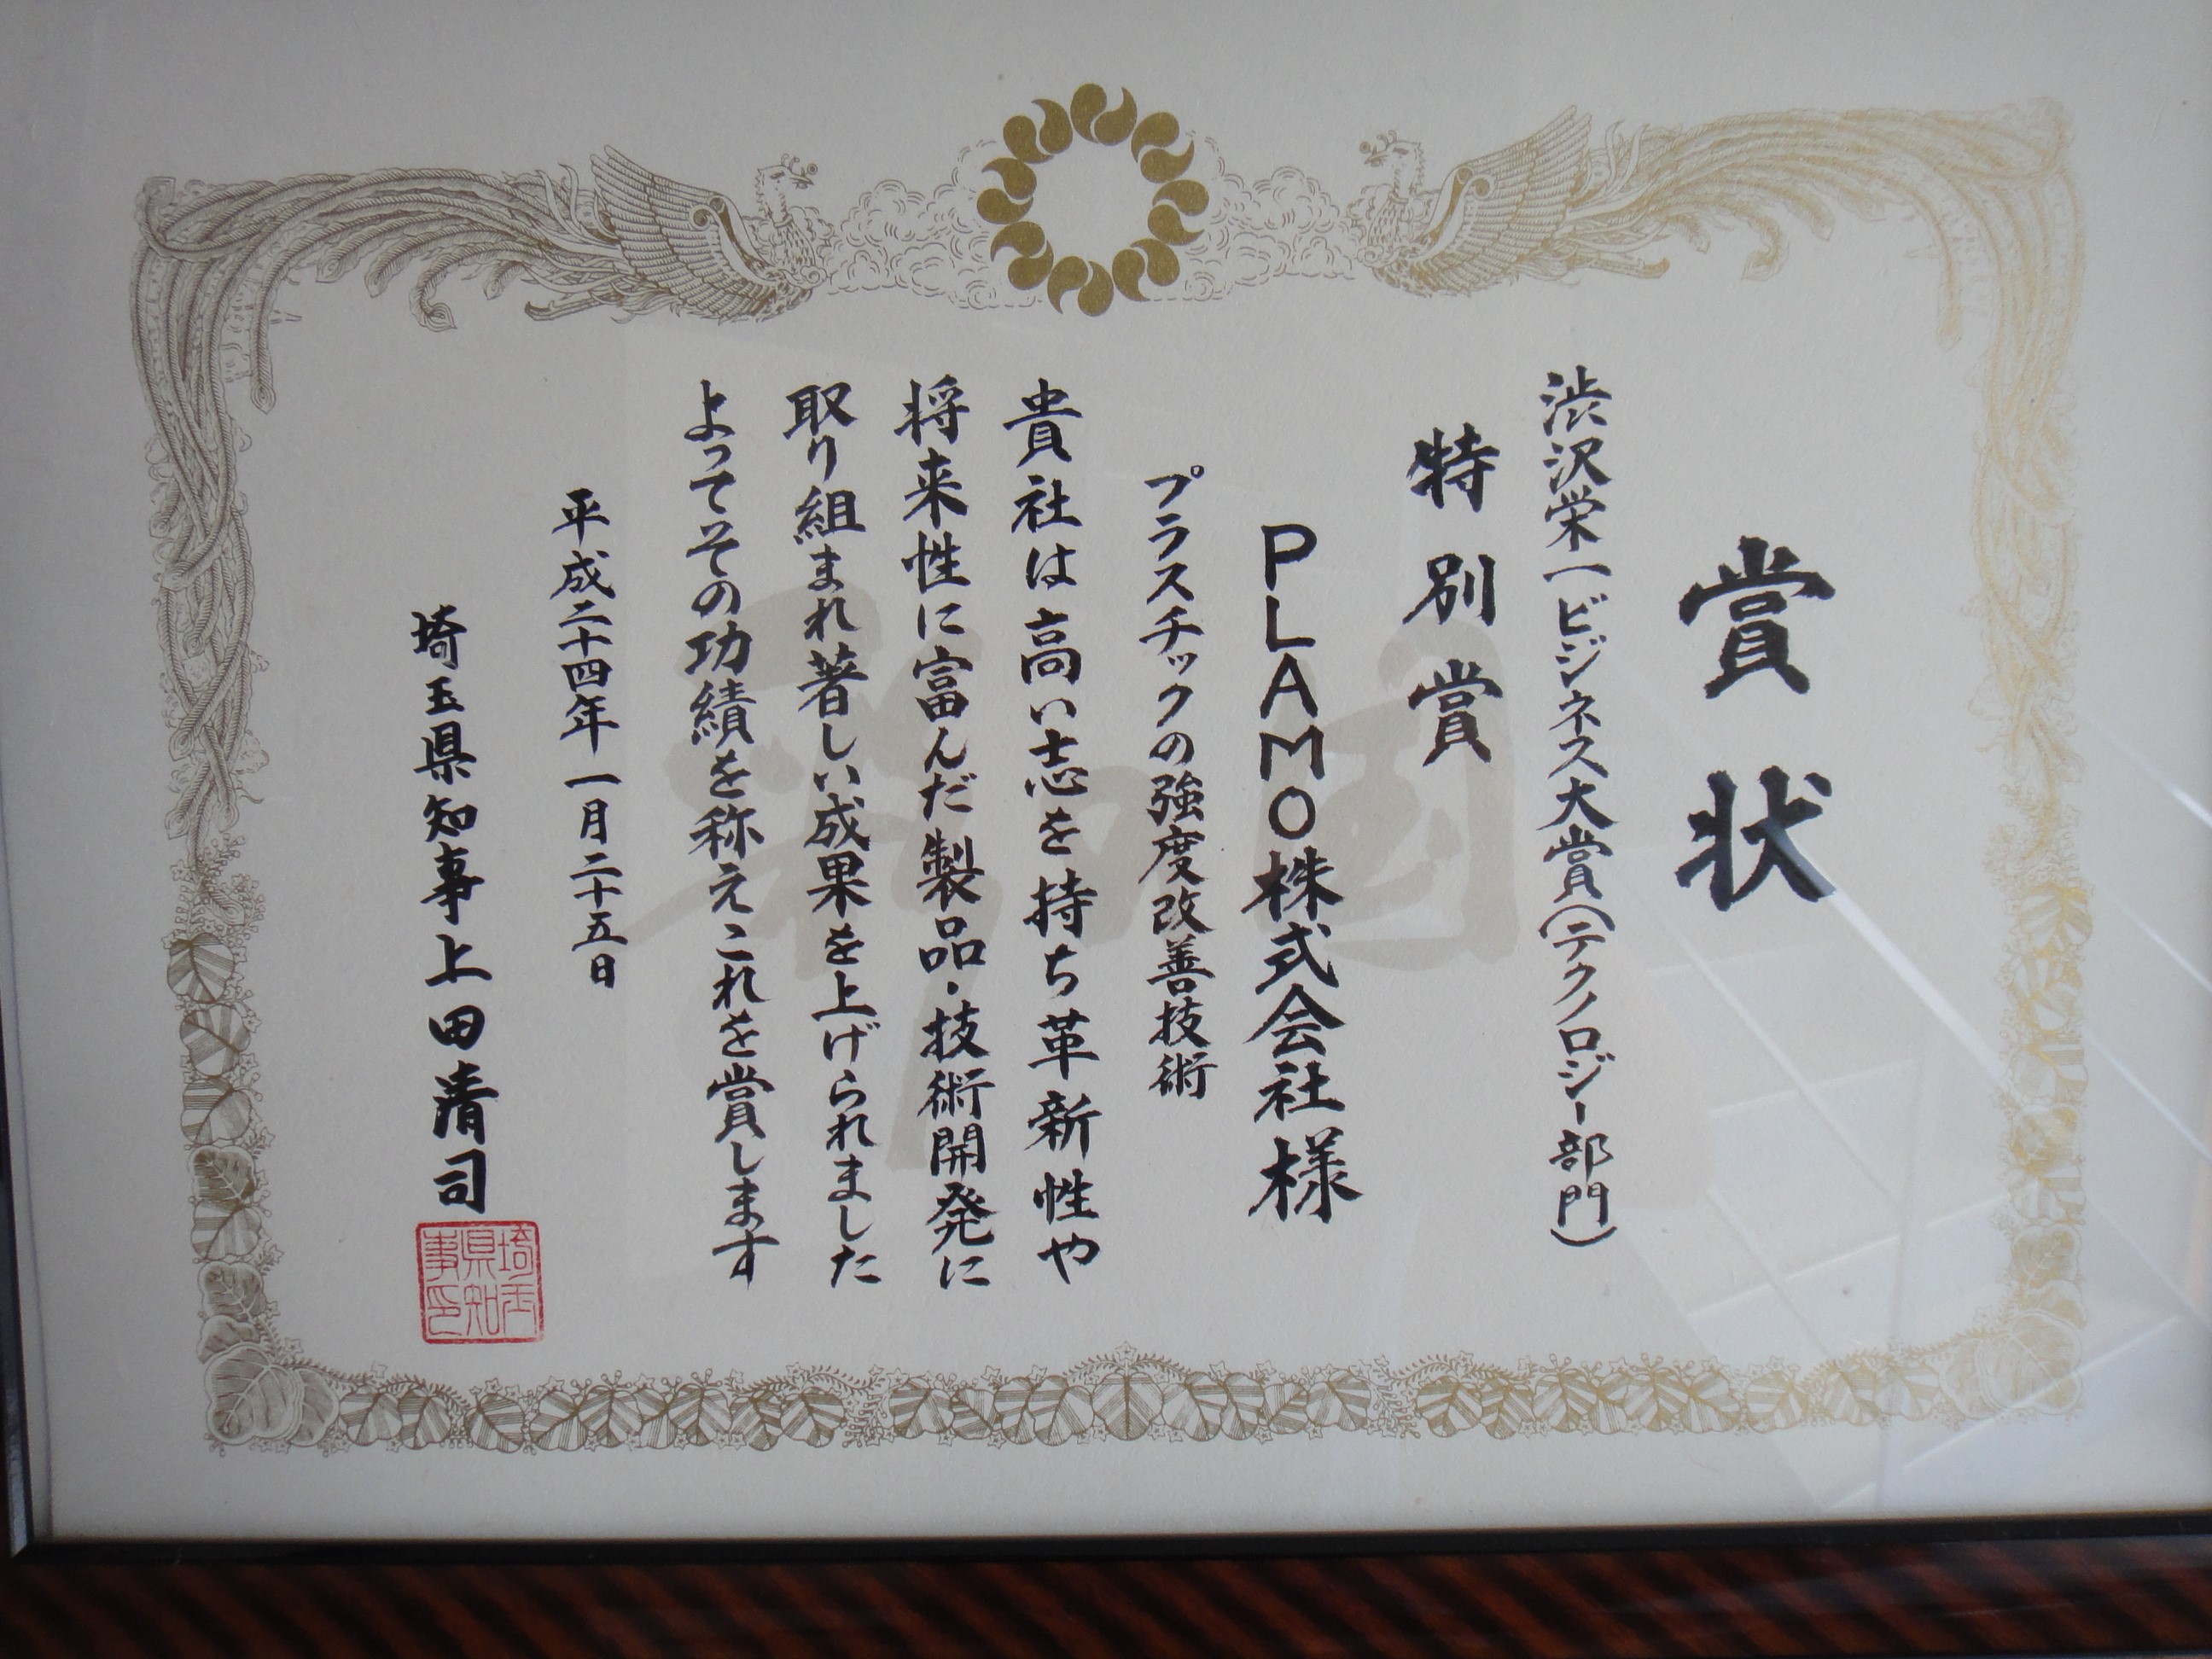 賞状
渋沢栄一ビジネス大賞(テクノロジー部門)
特別賞
PLAMO株式会社様
プラスチックの強度改善技術
貴社は高い志を持ち革新性や
将来性に富んだ製品・技術開発に
取り組まれ著しい成果を上げられました
よってその功績を称えこれを賞します
平成二十四年一月二十五日
埼玉県知事上田清司
埼玉
県知
事印